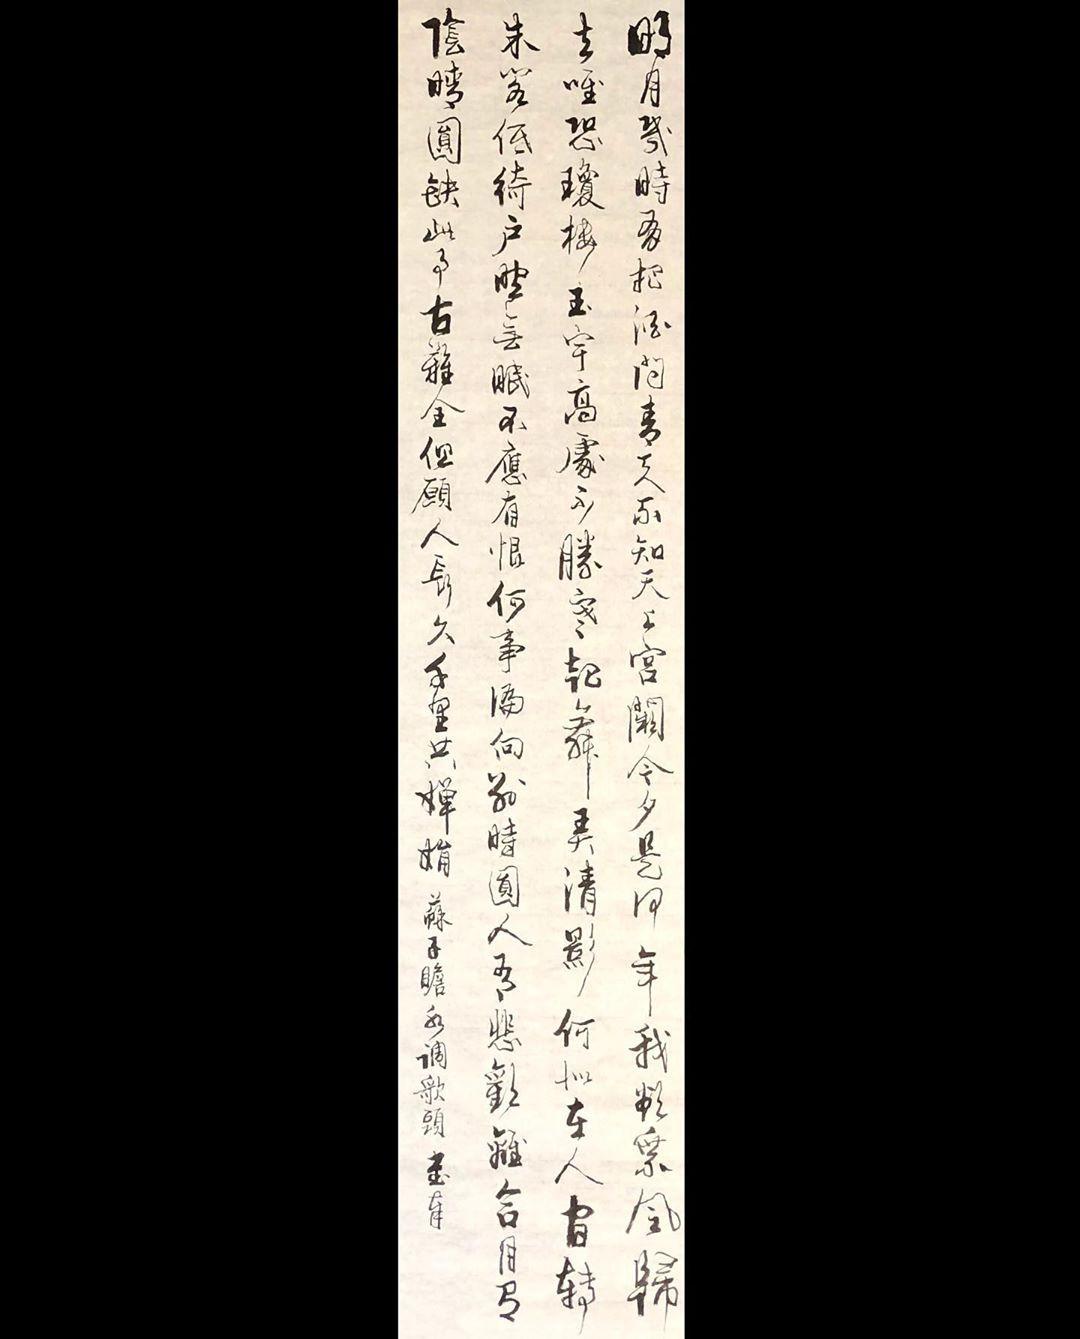 明月幾時有把酒問青天不知天上宮闕今夕是何年我欲乘風歸
去唯恐瓊樓玉宇高處不勝寒起舞弄清影何似在人間轉
朱閣低綺戶照無眠不應有恨何事偏向別時圓人有悲歡離合月有
陰晴圓缺此事古難全但願人長久千里共嬋娟 蘇子瞻水调歌頭 書年